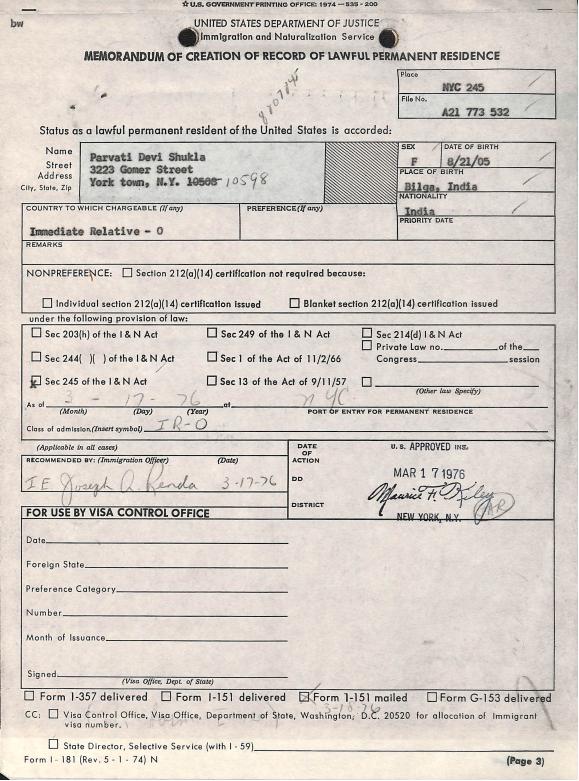 ☆ U.S. GOVERNMENT PRINTING OFFICE: 1974 — 535 - 200
bw
UNITED STATES DEPARTMENT OF JUSTICE
Immigration and Naturalization Service
MEMORANDUM OF CREATION OF RECORD OF LAWFUL PERMANENT RESIDENCE
Place
NYC 245
File No.
A21 773 532
Status as a lawful permanent resident of the United States is accorded:
Name
Street
Address
City, State, Zip
Parvati Devi Shukla
3223 Gomer Street
York town, N.Y. 10568 10598
SEX
F
DATE OF BIRTH
8/21/05
PLACE OF BIRTH
Bilga, India
NATIONALITY
India
PRIORITY DATE
COUNTRY TO WHICH CHARGEABLE (If any)
Immediate Relative - O
PREFERENCE(If any)
REMARKS
NONPREFERENCE: Section 212(a)(14) certification not required because:
Individual section 212(a)(14) certification issued Blanket section 212(a)(14) certification issued
under the following provision of law:
Sec 203(h) of the I & N Act Sec 249 of the I & N Act Sec 214(d) I & N Act
Private Law no. of the
Sec 244( )( ) of the I & N Act Sec 1 of the Act of 11/2/66 Congress session
X Sec 245 of the I & N Act Sec 13 of the Act of 9/11/57
(Other law Specify)
As of 3 - 17 - 76 at NYC
(Month) (Day) (Year) PORT OF ENTRY FOR PERMANENT RESIDENCE
Class of admission(Insert symbol) IR-O
(Applicable in all cases)
RECOMMENDED BY: (Immigration Officer) (Date)
I E Joseph A. Renda 3-17-76
DATE OF ACTION
DD
DISTRICT
U.S. APPROVED INS.
MAR 17 1976
NEW YORK, N.Y.
FOR USE BY VISA CONTROL OFFICE
Date
Foreign State
Preference Category
Number
Month of Issuance
Signed
(Visa Office, Dept. of State)
Form I-357 delivered Form I-151 delivered Form I-151 mailed Form G-153 delivered
3-18-76
CC: Visa Control Office, Visa Office, Department of State, Washington, D.C. 20520 for allocation of Immigrant
visa number.
State Director, Selective Service (with I - 59)
Form I - 181 (Rev. 5 - 1 - 74) N
(Page 3)